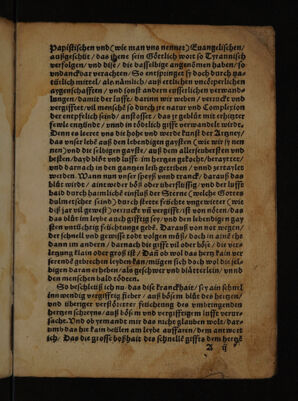 Papistischen vnd (wie man vns nennet) Euangelischen,
außgeschüt, das ihene sein Göttlich wort so Tyrannisch
verfolgen, vnd diße, die dasselbige angenomen haben, so
vndanckbar verachten. So entspringet sy doch durch na-
türlich mittel, als nämlich, auß etlichen vncörperlichen
aygenschafften, vnd sonst andern eüsserlichen verwand-
lungen, damit der lufft, darinn wir weben, verruckt vnd
vergifftet, vil menschẽ so der zu natur vnd Complexion
der entpfelich seind, anstosset, das jr geblüt mit erhitzter
fewle engünde, vnd in tödtlich gifft verwandelt werde.
Denn es leeret vns die hohe vnd werde kunst der Artzney,
das vnser lebẽ auß den lebendigen gaysten (wie wir sy nen
nen) vnd die selbigen gayst, auß dem allersenbersten vnd
besten, bayd blůt vnd lufft im hertzen gekocht, berayttet,
vnd darnach in den gantzen leib getriben, vnd zertaylet
werden. Wann nun vnser speyß vnd tranck, darauß das
blůt wirdt, aintweder böß oder überflüssig, vnd der lufft
bald durch haimlichen einfluß der Sterne (welche Gottes
dulmetschen seind) durch stette feüchte vngewitter (wie
diß jar vil gewest) verruckt vnd vergifft, ist von nöten, das
das blůt im leybe auch gifftig sey, vnd den lebendigen gay
sten vntüchtig feüchtunge gebe. Darauß von not wegen,
der schnell vnd gewisse todt volgen můß, doch in aim ehe
dann im andern, darnach die gifft vil oder böß, die ver-
letzung klain oder groß ist. Dañ ob wol das hertz kain ver
serende gebrechen leyden kan, mügen sich doch wol die sel-
bigen daran erheben, als geschwer vnd blätterlein, vnd den
menschen bald tödten.
So beschleüß ich nu, das dise kranckhait, sey ain schnel
inn wendig vergifftig fieber, auß bösem blůt des hertzen,
vnd übriger versiörtter feüchtigung des vmbringenden
hertzen schreyns, auß bösem vnd vergifftigem lufft verur-
sacht. Vnd ob yemandt mir das nicht glauben wolt, dar-
umb das ihr kain beüllen am leybe auffaren, dem antwort
ich, Das die grosse boßhait des schnellẽ giffts dem hertzẽ
A ij